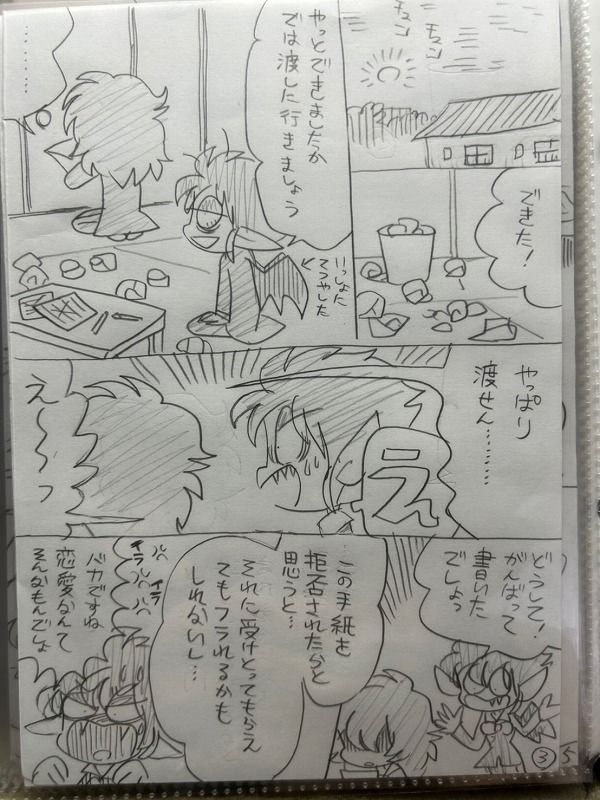 チュン
チュン
できた!
やっとできましたか
では渡した行きましょう
いっしょに
てつやした
………
やっぱり
渡せん………
え
え〜〜っ
どうして!
がんばって
書いた
でしょっ
この手紙を
拒否されたらと
思うと…
それに受けとってもらえ
てもフラれるかも
しれないし…
イラ
イラ
バカですね
恋愛なんて
そんなもんでしょ
3
5